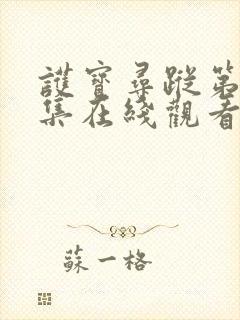 護寶尋蹤第
集在綫觀看
蘇一格